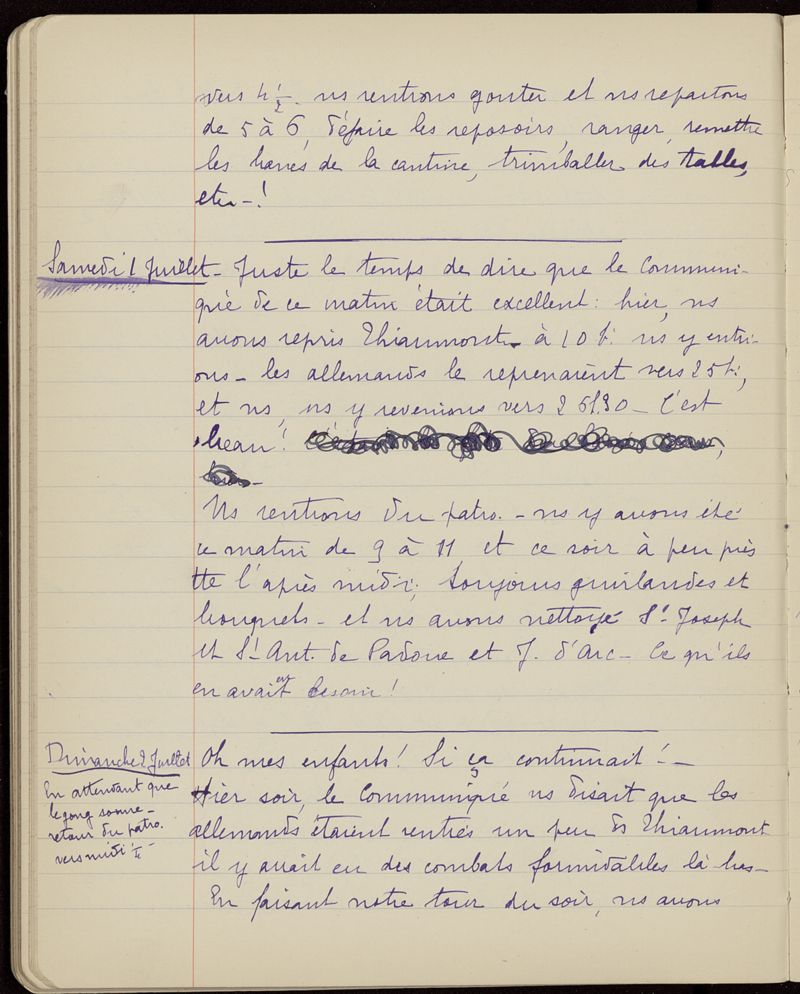 vers 4 ½. ns rentrons gouter et ns repartons
de 5 à 6, défaire les reposoirs, ranger, remettre
les bancs de la cantine, trimballer des tables,
etc - !
Samedi 1 Juillet - Juste le temps de dire que le communi-
qué de ce matin était excellent : hier, ns
avons repris Thiaumont - à 10 h. ns y entri-
ons - les allemands le reprenaient vers
et ns, ns y revenions vers - C'est
beau !
Ns rentrons du patro. - ns y avons été
ce matin de 9 à 11 et ce soir à peu près
tte l'après midi ; toujours guirlandes et
bouquets - et ns avons nettoyé St Joseph
et St Ant. de Padoue et J. d'Arc - Ce qu'ils
en avaient besoin !
Dimanche 2 Juillet
En attendant que
le gong sonne -
retour du patro.
vers midi ¼ -
Oh mes enfants ! Si ça continuait ! -
Hier soir, le Communiqué ns disait que les
allemands étaient rentrés un peu ds Thiaumont
il y avait eu des combats formidables là-bas -
En faisant notre tour du soir, ns avons